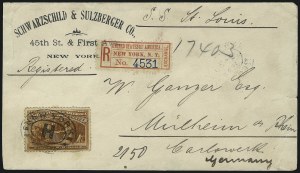 SCHWARZSCHILD & SULZBERGER CO.
45th St. & First
NEW YORK
S.S. St. Louis.
17403
Registered
R
NEW YORK, N.Y.
No. 4531
W. Ganzer Esq.
Mülheim a/Rhein
2150 Carlswerk
Germany